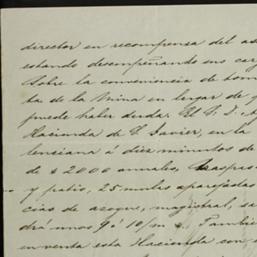 director en recompensa del
estando desempeñando sus
sobre la conveniencia de
ta de la Mina en lugar de
puede haber dudar. U. S. I.
Hacienda de S. Javier, en la
lenciana á diez minutos de
de $2000 annales,
y patio, 25 mulas aparejadas
cias de azogue, magistral,
drá unos 9 á 10/m
en venta esta Hacienda con